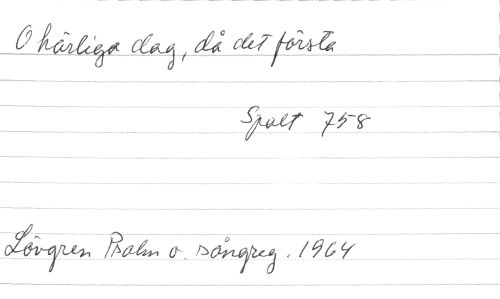 O härliga dag, då det första
Spalt 758
Lövgren Psalm o. sångreg. 1964